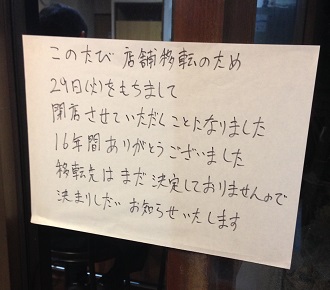 このたび 店舗移転のため
29日(火)をもちまして
閉店させていただくことになりました
16年間ありがとうございました
移転先はまだ決定しておりませんので
決まりしだい お知らせいたします